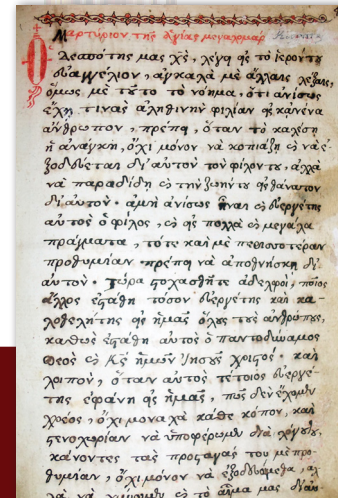 Μαρτύριον τῆς ἁγίας μεγαλομάρ
Ὁ δεσπότης μας χς, λέγῃ εἰς τὸ ἱερὸν του
ἐυαγγέλιον, ἀγκαλὰ μὲ ἄλλαις λέξαις,
ὅμως μὲ τοῦτο τὸ νόημα, ὅτι ἀνίσως
ἔχῃ τινὰς ἀληθινὴν φιλίαν εἰς κανένα
ἄνθρωπον, πρέπῃ, ὅταν τὸ καλέσῃ
ἡ ἀνάγκη, ὄχι μόνον νὰ κοπιάζῃ καὶ νὰ ἐ
ξοδεύεται δι' αὐτὸν τὸν φίλον του, ἀλλὰ
νὰ παραδίδῃ καὶ τὴν ζωήν του εἰς θάνατον
δι' αὐτόν· ἀμὴ ἀνίσως ἦναι καὶ ἐυεργέτης
αὐτὸς ὁ φίλος, καὶ εἰς πολλὰ καὶ μεγάλα
πράγματα, τότε καὶ μὲ περισσοτέραν
προθυμίαν πρέπῃ νὰ ἀποθνήσκῃ δι'
αὐτόν· τώρα στοχασθῆτε ἀδελφοί, ποῖος
ἄλλος ἐστάθη τόσον ἐυεργέτης καὶ κα
λοθελήτης εἰς ἡμᾶς ὅλους τοὺς ἀνθρώπους,
καθὼς ἐστάθη αὐτὸς ὁ παντοδύναμος
Θεὸς καὶ Κς ἡμῶν Ἰησοῦς χριστός· καὶ
λοιπὸν, ὅταν αὐτὸς τέτοιος ἐυεργέ
της ἐφάνη εἰς ἡμᾶς, πῶς δὲν ἔχομεν
χρέος, ὄχι μοναχὰ κάθε κόπον, καὶ
στενοχωρίαν νὰ ὑποφέρωμεν διὰ λόγου του,
κάνοντες τὰς προσταγάς του μὲ προ
θυμίαν, ὄχι μόνον νὰ ἐξοδευώμεθα, ἀλ
λὰ νὰ χύνωμεν καὶ τὸ αἷμα μας διὰ